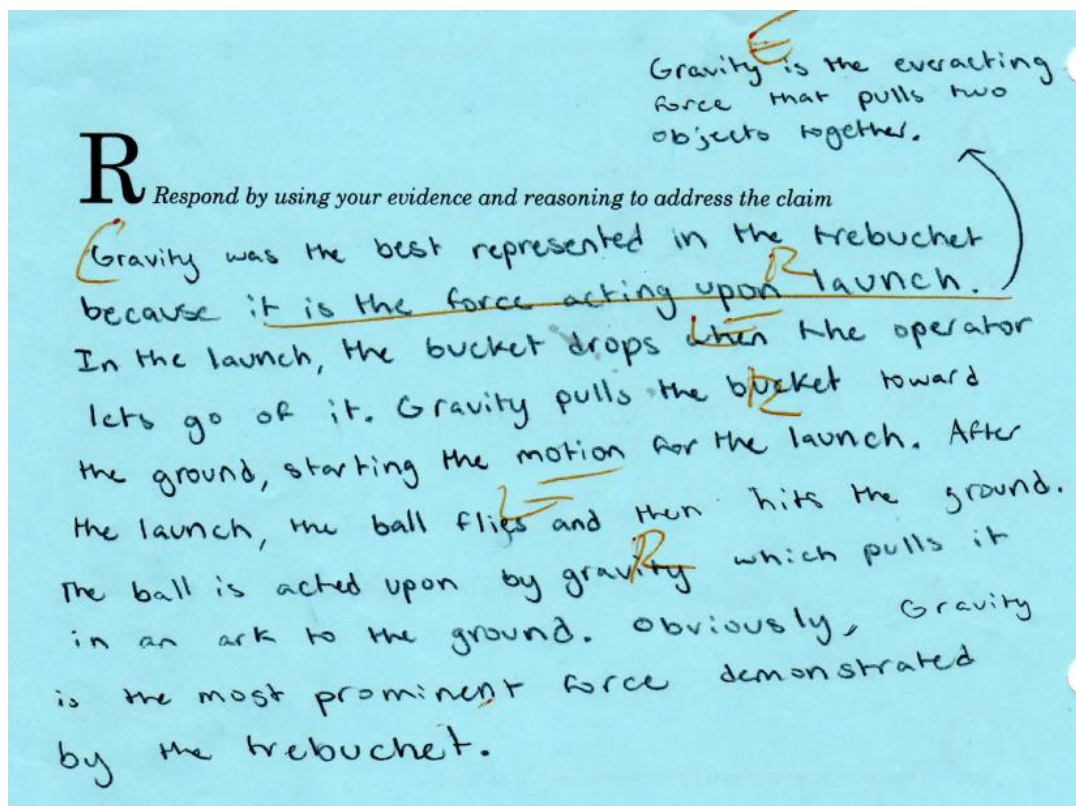 E
Gravity is the everacting
force that pulls two
objects together.
R Respond by using your evidence and reasoning to address the claim
C
Gravity was the best represented in the trebuchet
R
because it is the force acting upon launch.
E
In the launch, the bucket drops when the operator
R
lets go of it. Gravity pulls the bucket toward
the ground, starting the motion for the launch. After
E
the launch, the ball flies and then hits the ground.
R
The ball is acted upon by gravity which pulls it
in an ark to the ground. Obviously, Gravity
is the most prominent force demonstrated
by the trebuchet.